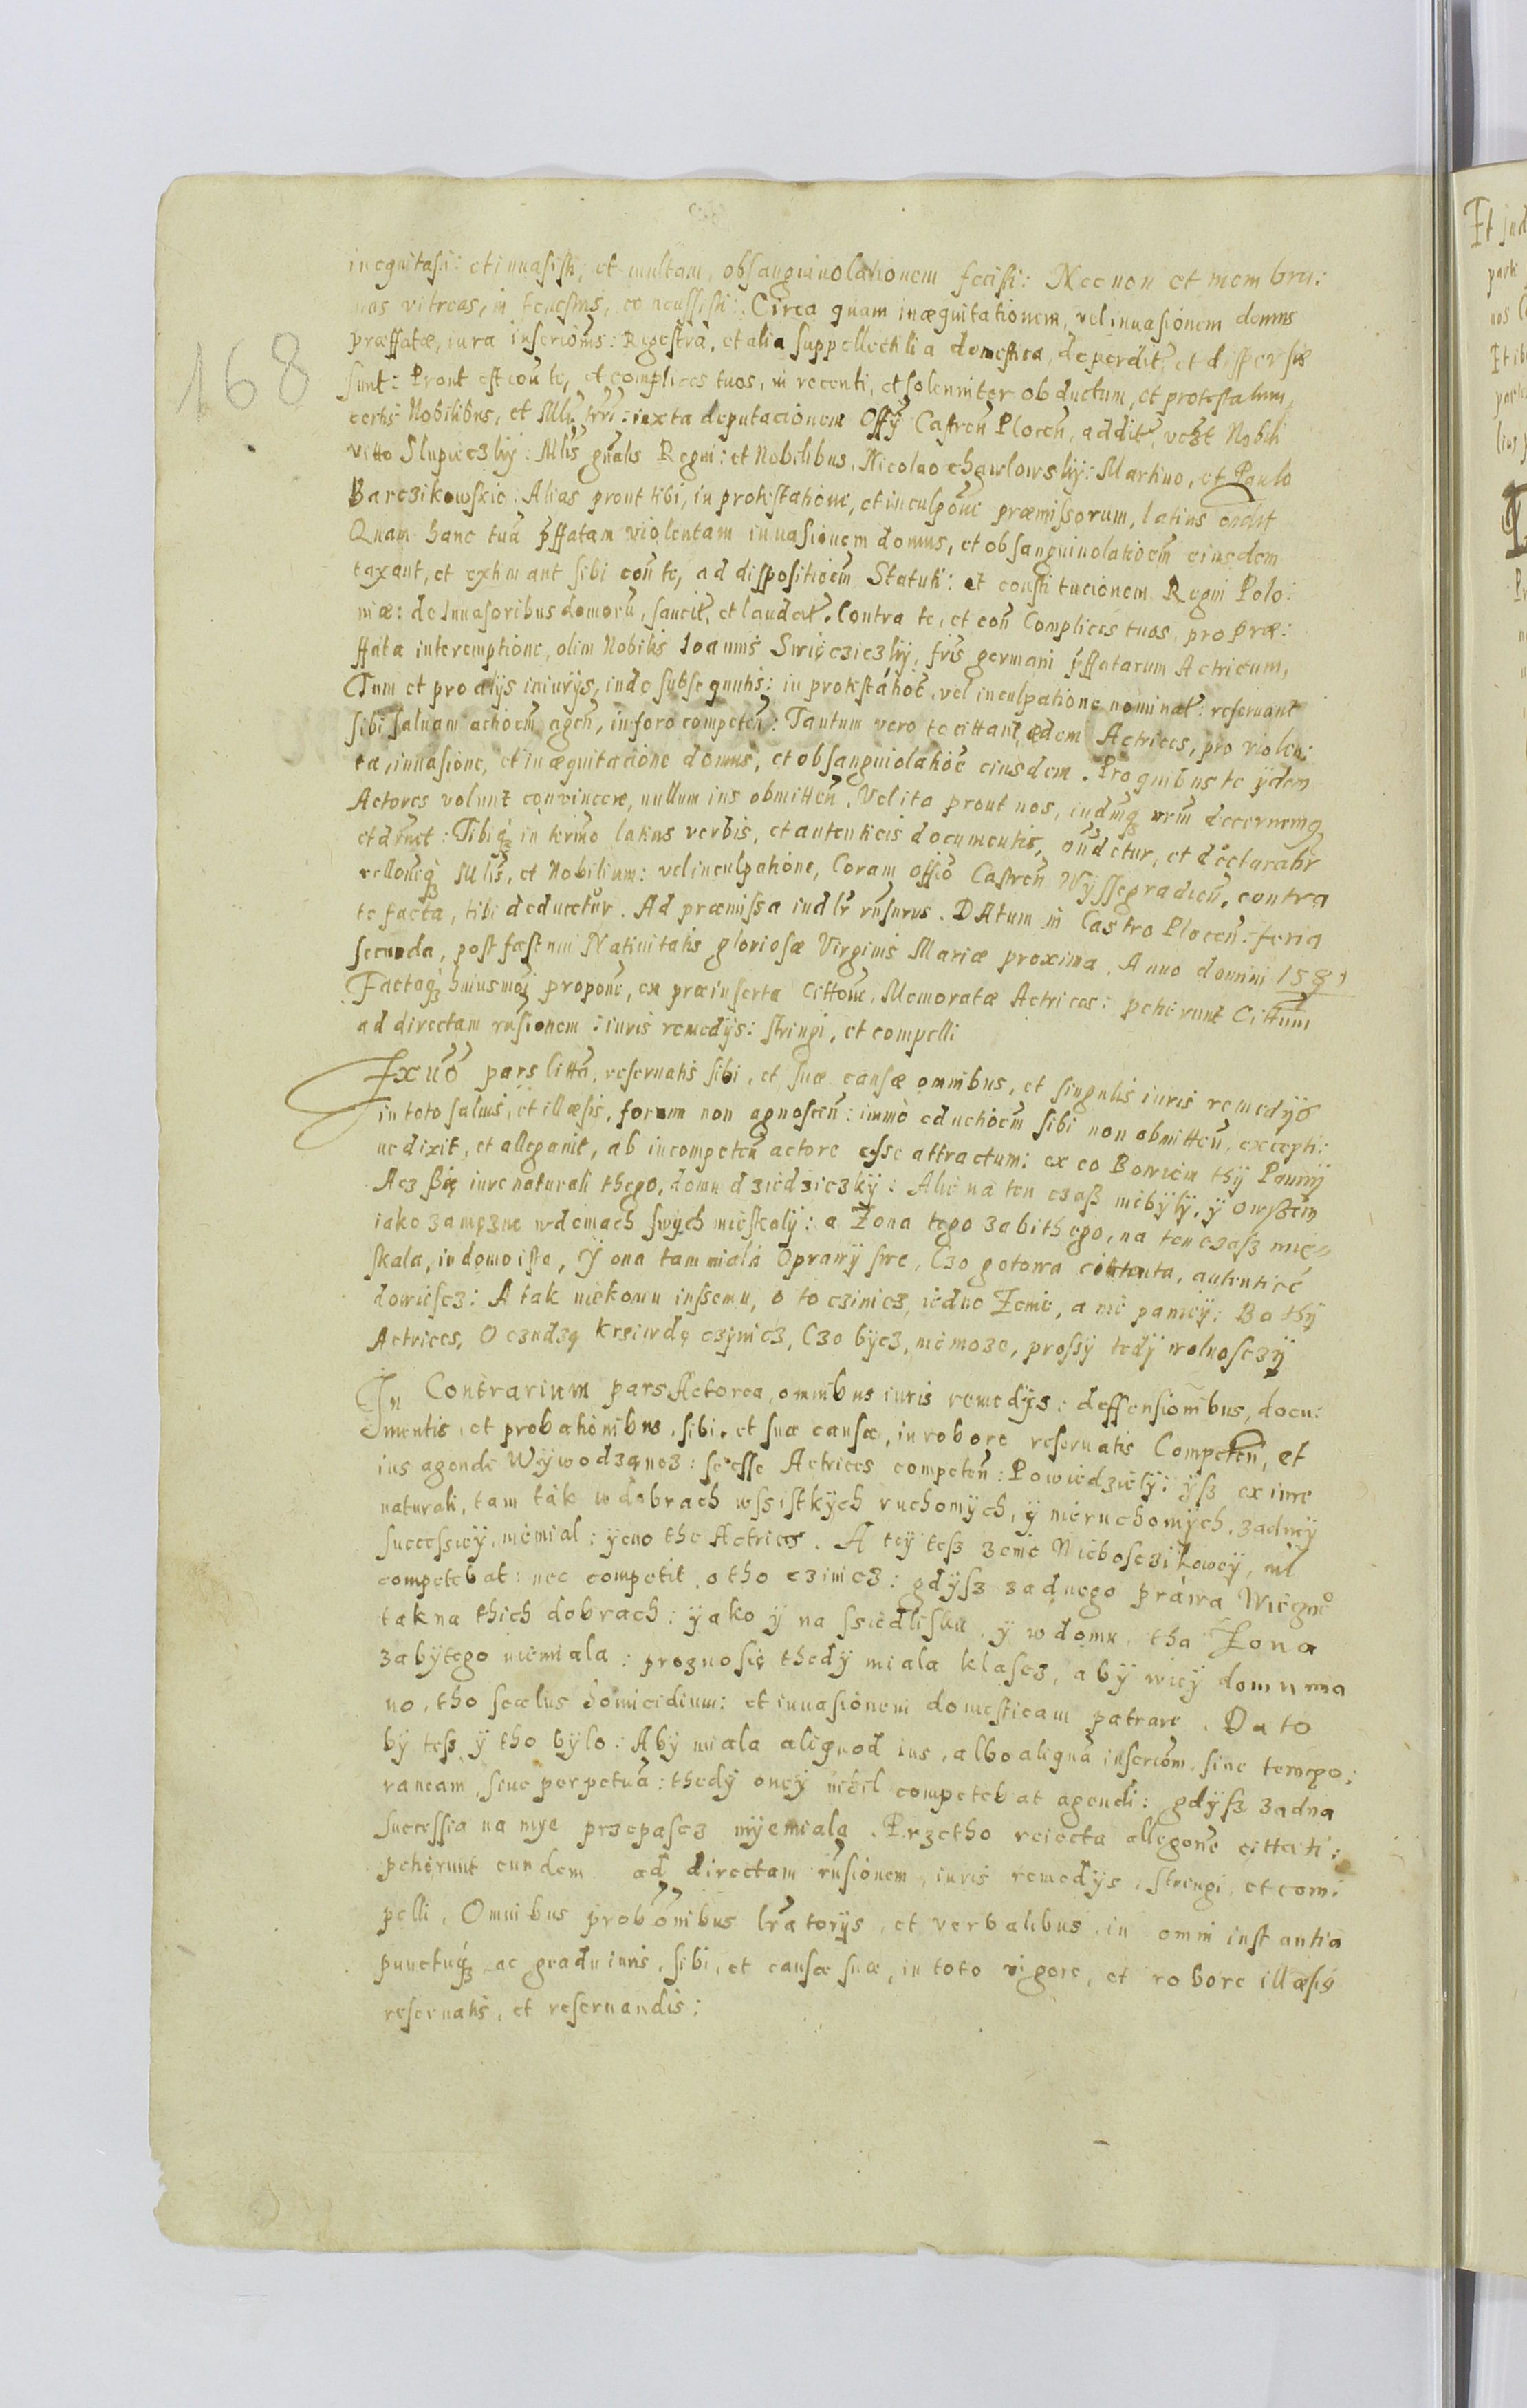 168
inequitasti: et inuasisti, et multam, obsanguinolationem fecisti: Nec non et membra:
nas vitreas, in fenestris, concussisti: Circa quam inæquitationem, vel inuasionem domus
præffatæ, iura inscrioms: Regestra, et alia suppellectilia domestica, deperdit, et dispersæ
sunt: Prout est con te, et complices tuos, in recenti, et solenniter obductum, et protestatum,
certis Nobilibus, et Mlr: iuxta deputacionem Offy Castren Plocen, addit, vczt Nobili
vitto Slupieczky: Mlis gnalis Regni: et Nobilibus, Nicolao chawlowsky: Martino, et Paulo
Barczikowskie: Alias prout tibi, in protestatione, et inculpone præmissorum, latius ondit
Quam hanc tuã pffatam violentam inuasionem domus, et obsanguinolatioem eiusdem
taxant, et extimant sibi con te, ad dispositioem Statuti: et constitucionem Regni Polo:
niæ: de Inuasoribus domorũ, sancit, et laudat. Contra te, et con Complices tuos, pro præ:
ffata interemptione, olim Nobilis Ioannis Swięczieczky, fris germani pffatarum Actricum,
Tum et pro alys iniurys, inde subsequutis: in protestatioe, vel inculpatione nominat: reseruant
sibi saluam actioem agen, in foro competen: Tantum vero te cittant, ædem Actrices, pro violen:
ta, inuasione, et inæquitacione domus, et obsanguiolatioe eiusdem. Pro quibus te ydem
Actores volunt conuincere, nullum ius obmitten, Vel ita prout nos, iudmqȝ nrm decernemq
et dnet: Tibiqȝ in termo latius verbis, et autenticis documentis, ondetur, et declarabr
relloneqȝ Mlis, et Nobilium: vel inculpatione, Coram offio Castren Wyssegradien, contra
te facta, tibi deducetur. Ad præmissa iudlr rnsurus. DAtum in Castro Plocen: feria
secunda, post fæstum Natiuitatis gloriosæ Virginis Mariæ proxima. Anno domini 1581
Factaqȝ huiusmoi propone, ex præinserta Cittone, Memoratæ Actrices: petierunt Cittum
ad directam rnsionem: iuris remedys: stringi, et compelli
Ex uo pars citta, reseruatis sibi, et suæ causæ omnibus, et singulis iuris remedys
in toto saluis, et illæsis, forum non agnoscen: immo eductioem sibi non obmitten, excepti:
ue dixit, et allegauit, ab incompeten actore esse attractum: ex eo Bowiem thy Panny
Acz się iure naturali thego, domu dziedziczky: Alie na ten czasz niebyly, y owszem
iako zamęzne wdomach swych mieskaly: a Zona tego zabithego, na tenczasz mie=
skala, in domo isto, Y ona tam miala Oprawy swe, Czo gotowa contenta, autentice
dowiescz: A tak niekomu inssemu, o to czinicz, iedno Zenie, a nie paniey: Bo thy
Actrices, O czudzą krziwdę czynicz, Czo bycz, niemoze, prossy tedy wolnosczy
In Contrarium pars Actorea, omnibus iuris remedys: deffensionibus, docu:
mentis, et probationibus, sibi, et suæ causæ, in robore reseruatis Competen, et
ius agende Wywodząncz: se esse Actrices competen: Powiedziely: ysz ex iure
naturali, tam tak w dobrach wssistkych ruchomych, y nieruchomych, zadney
successiey, niemial: yeno the Actrices. A tey tesz zenie Nieboszikowey, nil
competebat: nec competit o tho czinicz: gdysz zadnego prawa Wiegno
tak na thich dobrach: yako y na ssiedlisku, y w domu, tha Zona
zabytego niemiala: prozno się thedy miala klascz, aby wiey domu mia
no, tho scelus homicidium: et inuasionem domesticam patrare. Da to
by tesz y tho bylo: Aby miala aliquod ius, albo aliquã inscriom, siue tempo:
raneam, siue perpetuã: thedy oney nihil competebat agendi: gdysz zadna
successia na nye przepascz nyemiala. Przetho reiecta allegone cittati:
petierunt eundem ad directam rnsionem, iuris remedys, stringi, et com:
pelli, Omnibus probonibus lratorys, et verbalibus, in omni instantia
punctuqȝ ac gradu iuris, sibi, et causæ suæ, in toto vigore, et robore illæsis
reseruatis, et reseruandis: